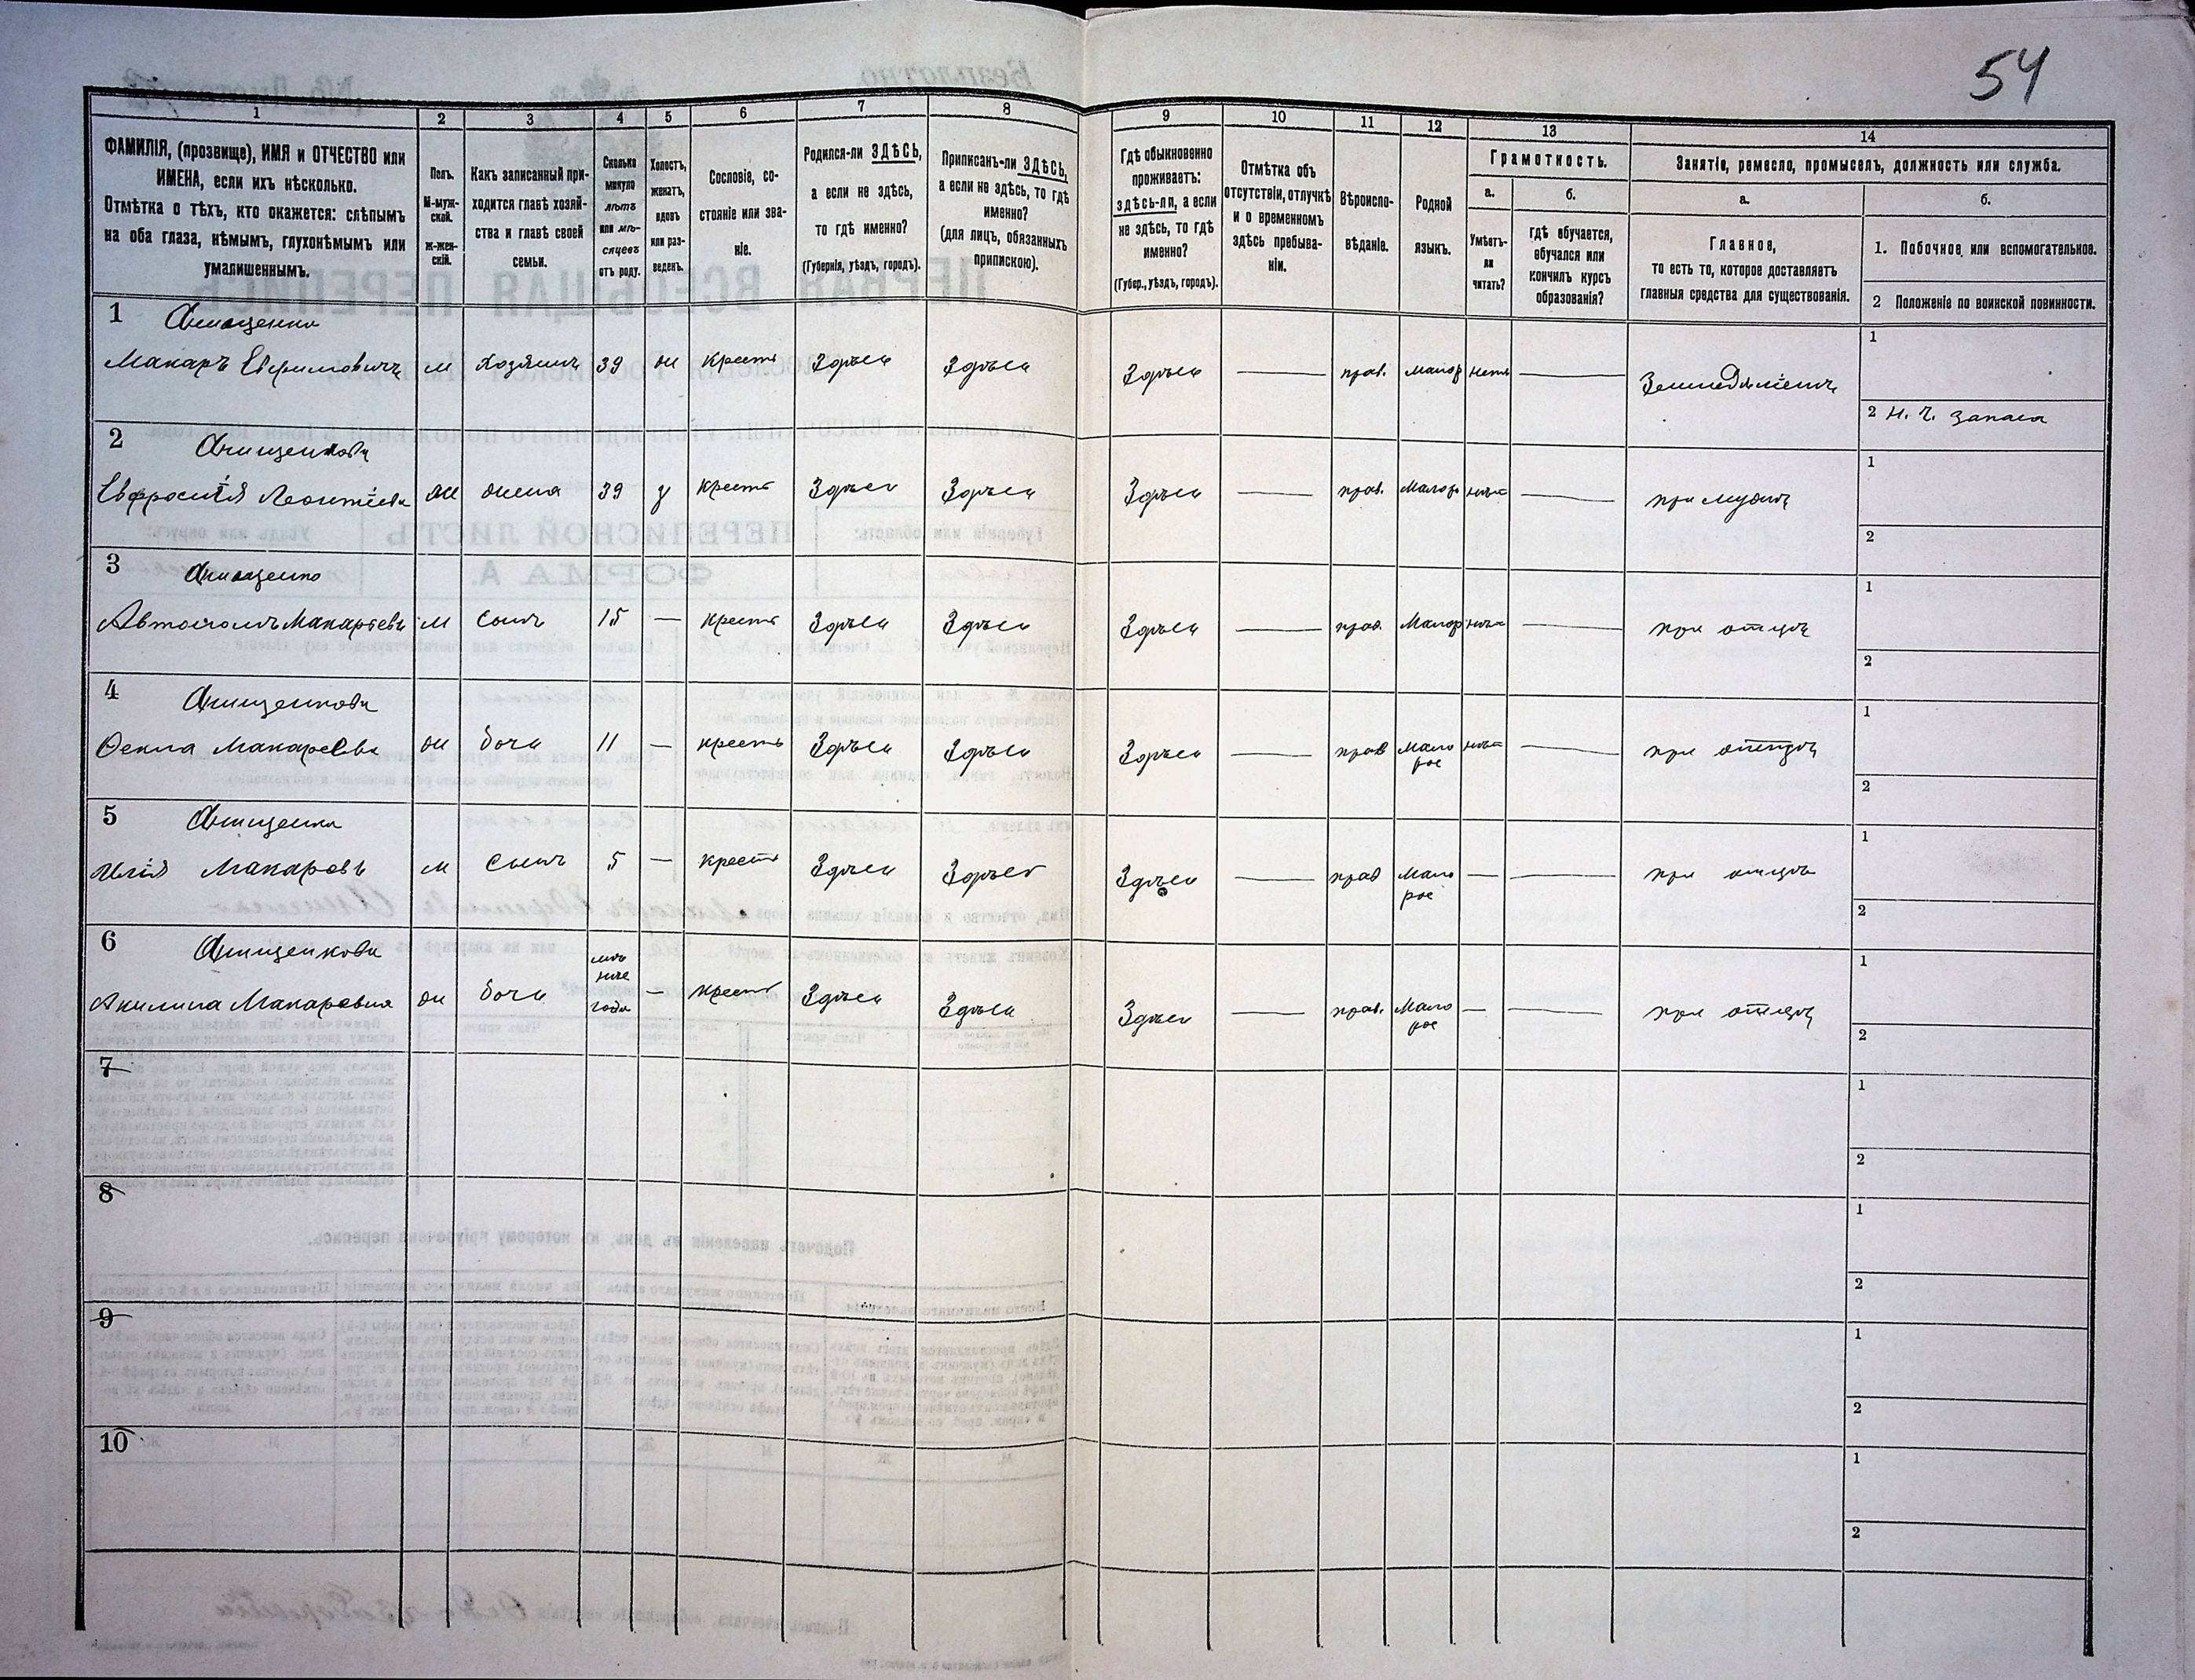 54
1
2
3
4
5
6
7
8
9
10
11
12
13
14
ФАМИЛІЯ, (прозвище), ИМЯ и ОТЧЕСТВО или
ИМЕНА, если ихъ нѣсколько.
Отмѣтка о тѣхъ, кто окажется: слѣпымъ
на оба глаза, нѣмымъ, глухонѣмымъ или
умалишеннымъ.
Полъ.
М-муж-
ской.
ж-жен-
скій.
Какъ записанный при-
ходится главѣ хозяй-
ства и главѣ своей
семьи.
Сколько
минуло
лѣтъ
или мѣ-
сяцевъ
отъ роду.
Холостъ,
женатъ,
вдовъ
или раз-
веденъ.
Сословіе, со-
стояніе или зва-
ніе.
Родился-ли ЗДѢСЬ,
а если не здѣсь,
то гдѣ именно?
(Губернія, уѣздъ, городъ).
Приписанъ-ли ЗДѢСЬ,
а если не здѣсь, то гдѣ
именно?
(для лицъ, обязанныхъ
припискою).
Гдѣ обыкновенно
проживаетъ:
здѣсь-ли, а если
не здѣсь, то гдѣ
именно?
(Губер., уѣздъ, городъ).
Отмѣтка объ
отсутствіи, отлучкѣ
и о временномъ
здѣсь пребыва-
ніи.
Вѣроиспо-
вѣданіе.
Родной
языкъ.
Грамотность.
а.
б.
Умѣетъ-
ли
читать?
гдѣ обучается,
обучался или
кончилъ курсъ
образованія?
Занятіе, ремесло, промыселъ, должность или служба.
а.
б.
Главное,
то есть то, которое доставляетъ
главныя средства для существованія.
1. Побочное или вспомогательное.
2 Положеніе по воинской повинности.
1 Анищенко
Макаръ Ефимовичъ м хозяинъ 39 ж крест Здѣсь Здѣсь Здѣсь — прав. Малор нетъ — Земледѣліемъ 1
2 Н. Ч. запаса
2 Анищенкова
Евфросинія Леонтіева ж жена 39 з крест Здѣсь Здѣсь Здѣсь — прав. Малор нетъ — при мужѣ 1
2
3 Анищенко
Автономъ Макарьевъ м сынъ 15 — крест Здѣсь Здѣсь Здѣсь — прав. Малор нетъ — при отцѣ 1
2
4 Анищенкова
Ѳекла Макарьева ж дочь 11 — крест Здѣсь Здѣсь Здѣсь — прав Мало
рос нетъ — при отцѣ 1
2
5 Анищенко
Илія Макаровъ м сынъ 5 — крест Здѣсь Здѣсь Здѣсь — прав Мало
рос — — при отцѣ 1
2
6 Анищенкова
Акилина Макаровна ж дочь года — крест Здѣсь Здѣсь Здѣсь — прав. Мало
рос — — при отцѣ 1
2
7 1
2
8 1
2
9 1
2
10 1
2